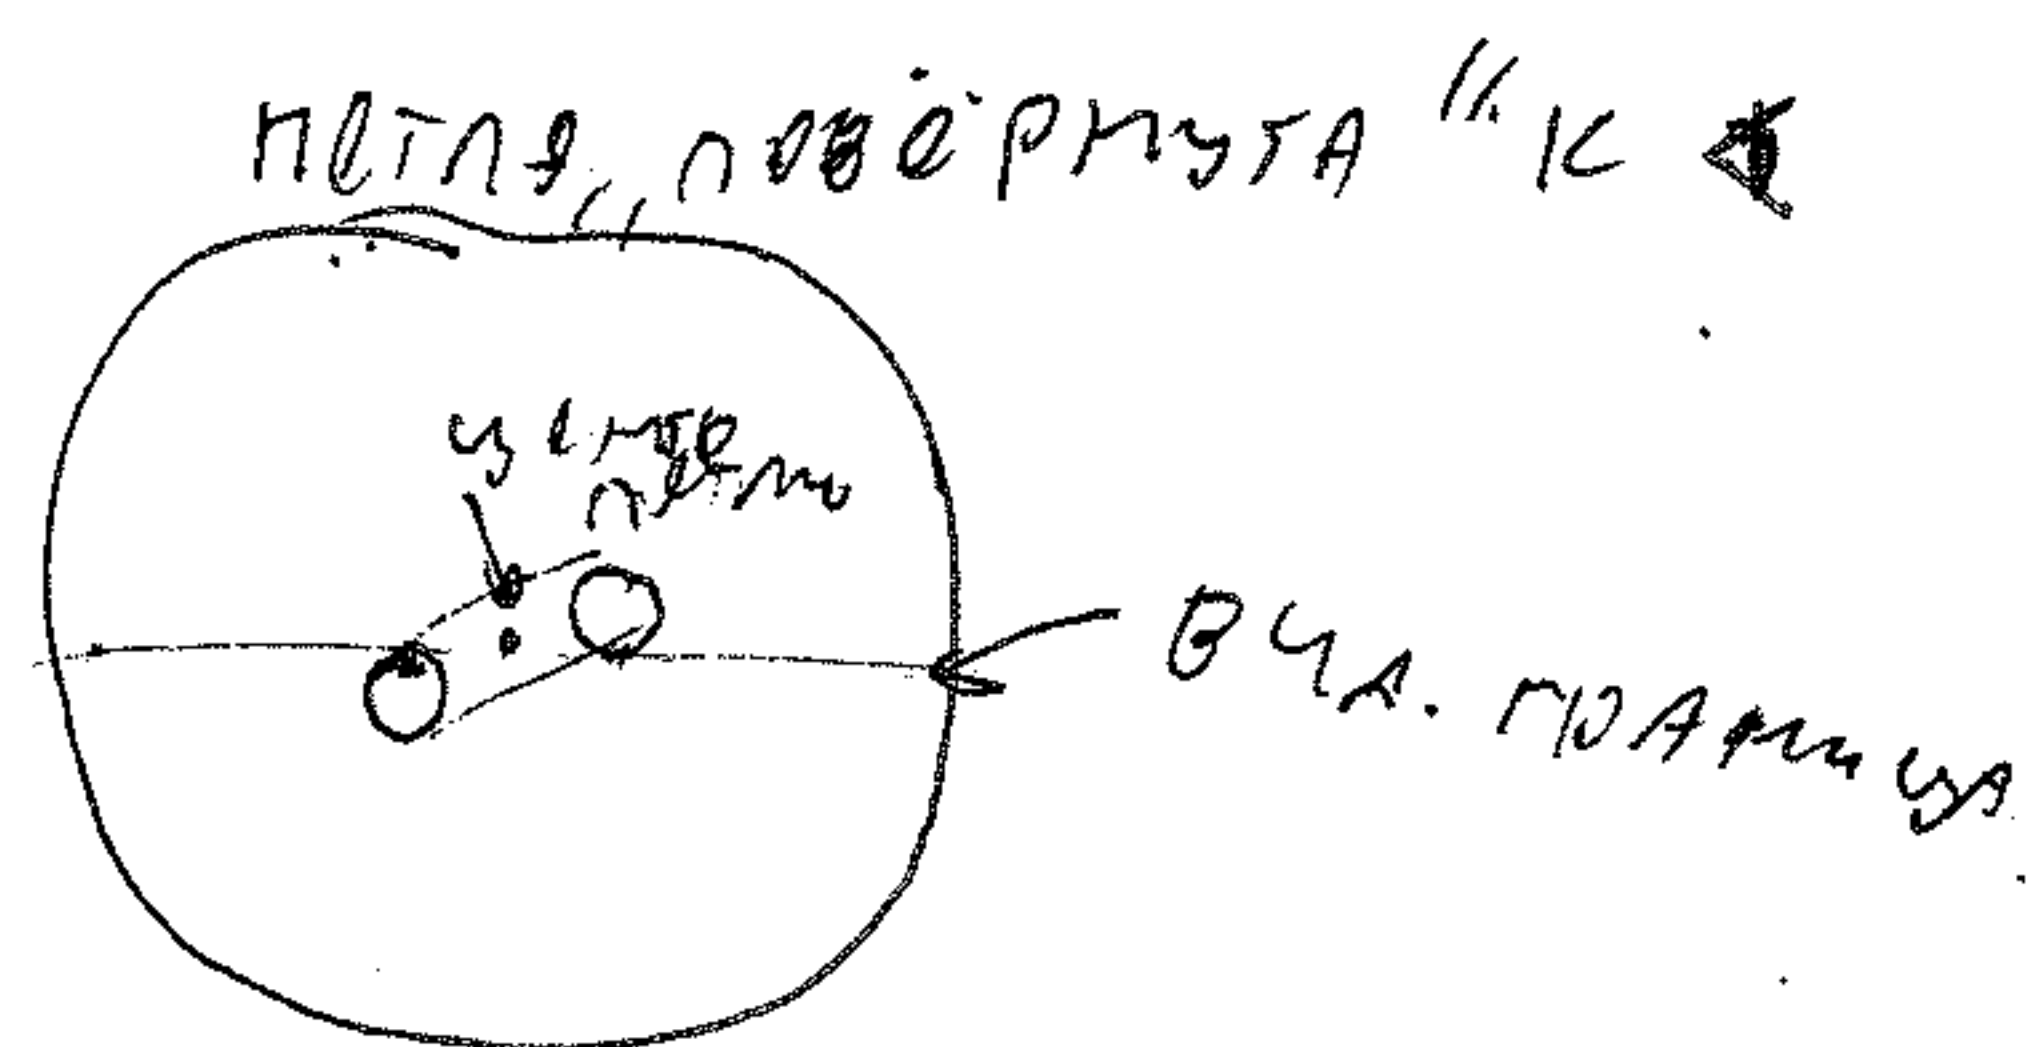 петля „повёрнута“ к
центр
петли
вид. граница